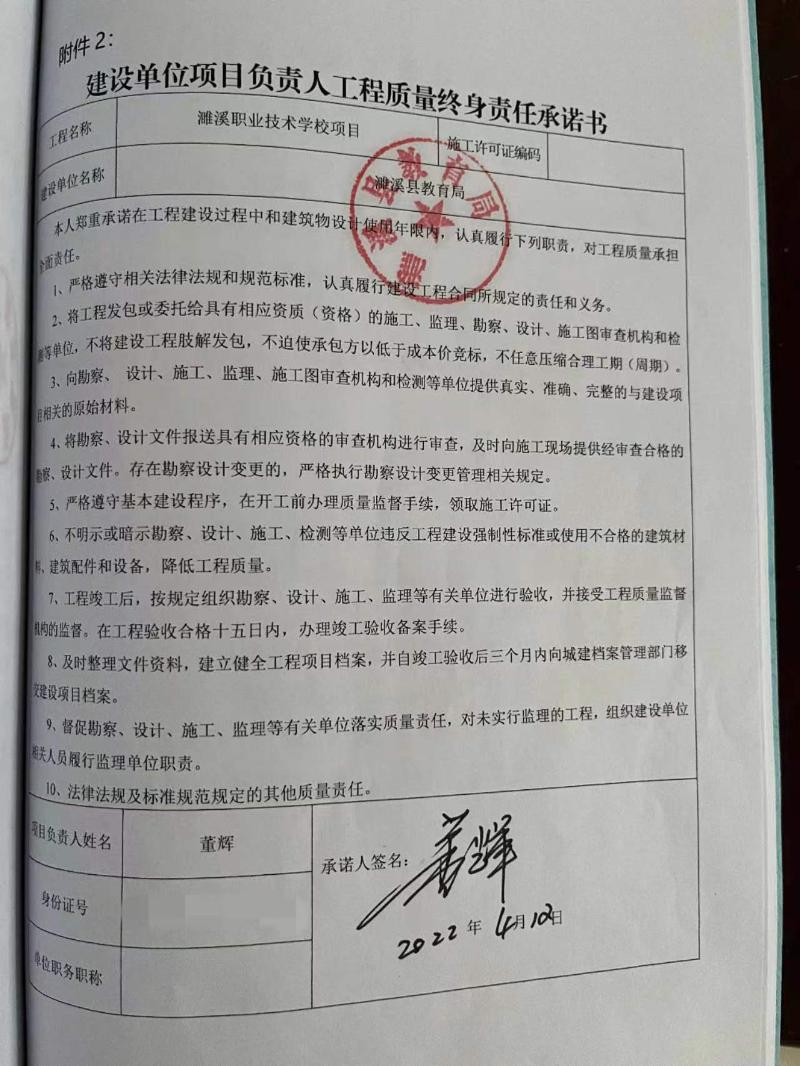 附件2：
建设单位项目负责人工程质量终身责任承诺书
工程名称 濉溪职业技术学校项目 施工许可证编码
建设单位名称 濉溪县教育局
濉溪县教育局
本人郑重承诺在工程建设过程中和建筑物设计使用年限内，认真履行下列职责，对工程质量承担
全面责任。
1、严格遵守相关法律法规和规范标准，认真履行建设工程合同所规定的责任和义务。
2、将工程发包或委托给具有相应资质（资格）的施工、监理、勘察、设计、施工图审查机构和检
测等单位，不将建设工程肢解发包，不迫使承包方以低于成本价竞标，不任意压缩合理工期（周期）。
3、向勘察、 设计、施工、监理、施工图审查机构和检测等单位提供真实、准确、完整的与建设项
目相关的原始材料。
4、将勘察、设计文件报送具有相应资格的审查机构进行审查，及时向施工现场提供经审查合格的
勘察、设计文件。存在勘察设计变更的，严格执行勘察设计变更管理相关规定。
5、严格遵守基本建设程序，在开工前办理质量监督手续，领取施工许可证。
6、不明示或暗示勘察、设计、施工、检测等单位违反工程建设强制性标准或使用不合格的建筑材
料、建筑配件和设备，降低工程质量。
7、工程竣工后，按规定组织勘察、设计、施工、监理等有关单位进行验收，并接受工程质量监督
机构的监督。在工程验收合格十五日内，办理竣工验收备案手续。
8、及时整理文件资料，建立健全工程项目档案，并自竣工验收后三个月内向城建档案管理部门移
交建设项目档案。
9、督促勘察、设计、施工、监理等有关单位落实质量责任，对未实行监理的工程，组织建设单位
相关人员履行监理单位职责。
10、法律法规及标准规范规定的其他质量责任。
项目负责人姓名 董辉
承诺人签名： 董辉
身份证号
2022年4月10日
单位职务职称